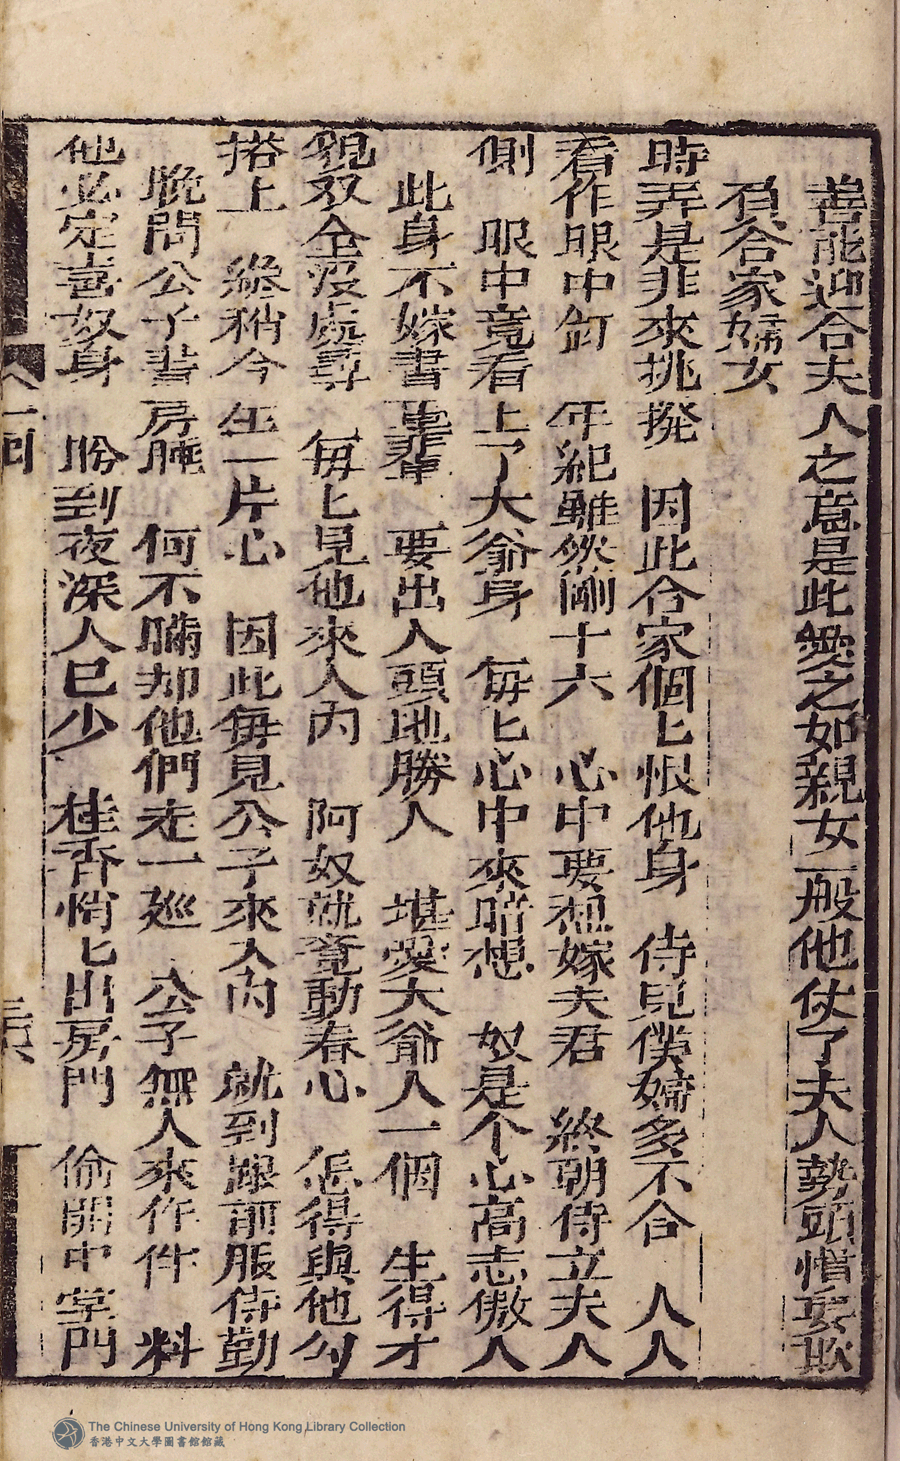 善能迎合夫人之意是此愛之如親女一般他仗了夫人勢頭惜妄欺
負合家婦女
時弄是非來挑撥　因此合家個匕恨他身　侍児僕婦多不合　人人
看作眼中釘　年紀雖然剛十六　心中要想嫁夫君　終朝侍立夫人
側　眼中竟看上了大爺身　每匕心中來暗想　奴是个心高志傲人
此身不嫁書軰　要出人頭地勝人　堪愛大爺人一個　生得才
貌双全没處尋　每匕見他來人內　阿奴就竟動春心　怎得與他勾
搭上　終稍今生一片心　因此每見公子來入内　就到跟前服侍勤
晚間公子書房睡　何不瞞却他們走一巡　公子無人來作伴　料
他必定喜奴身　盼到夜深人已少　桂香悄匕出房門　偷開中堂門
一囘
The Chinese University of Hong Kong Library Collection
香港中文大學圖書館館藏